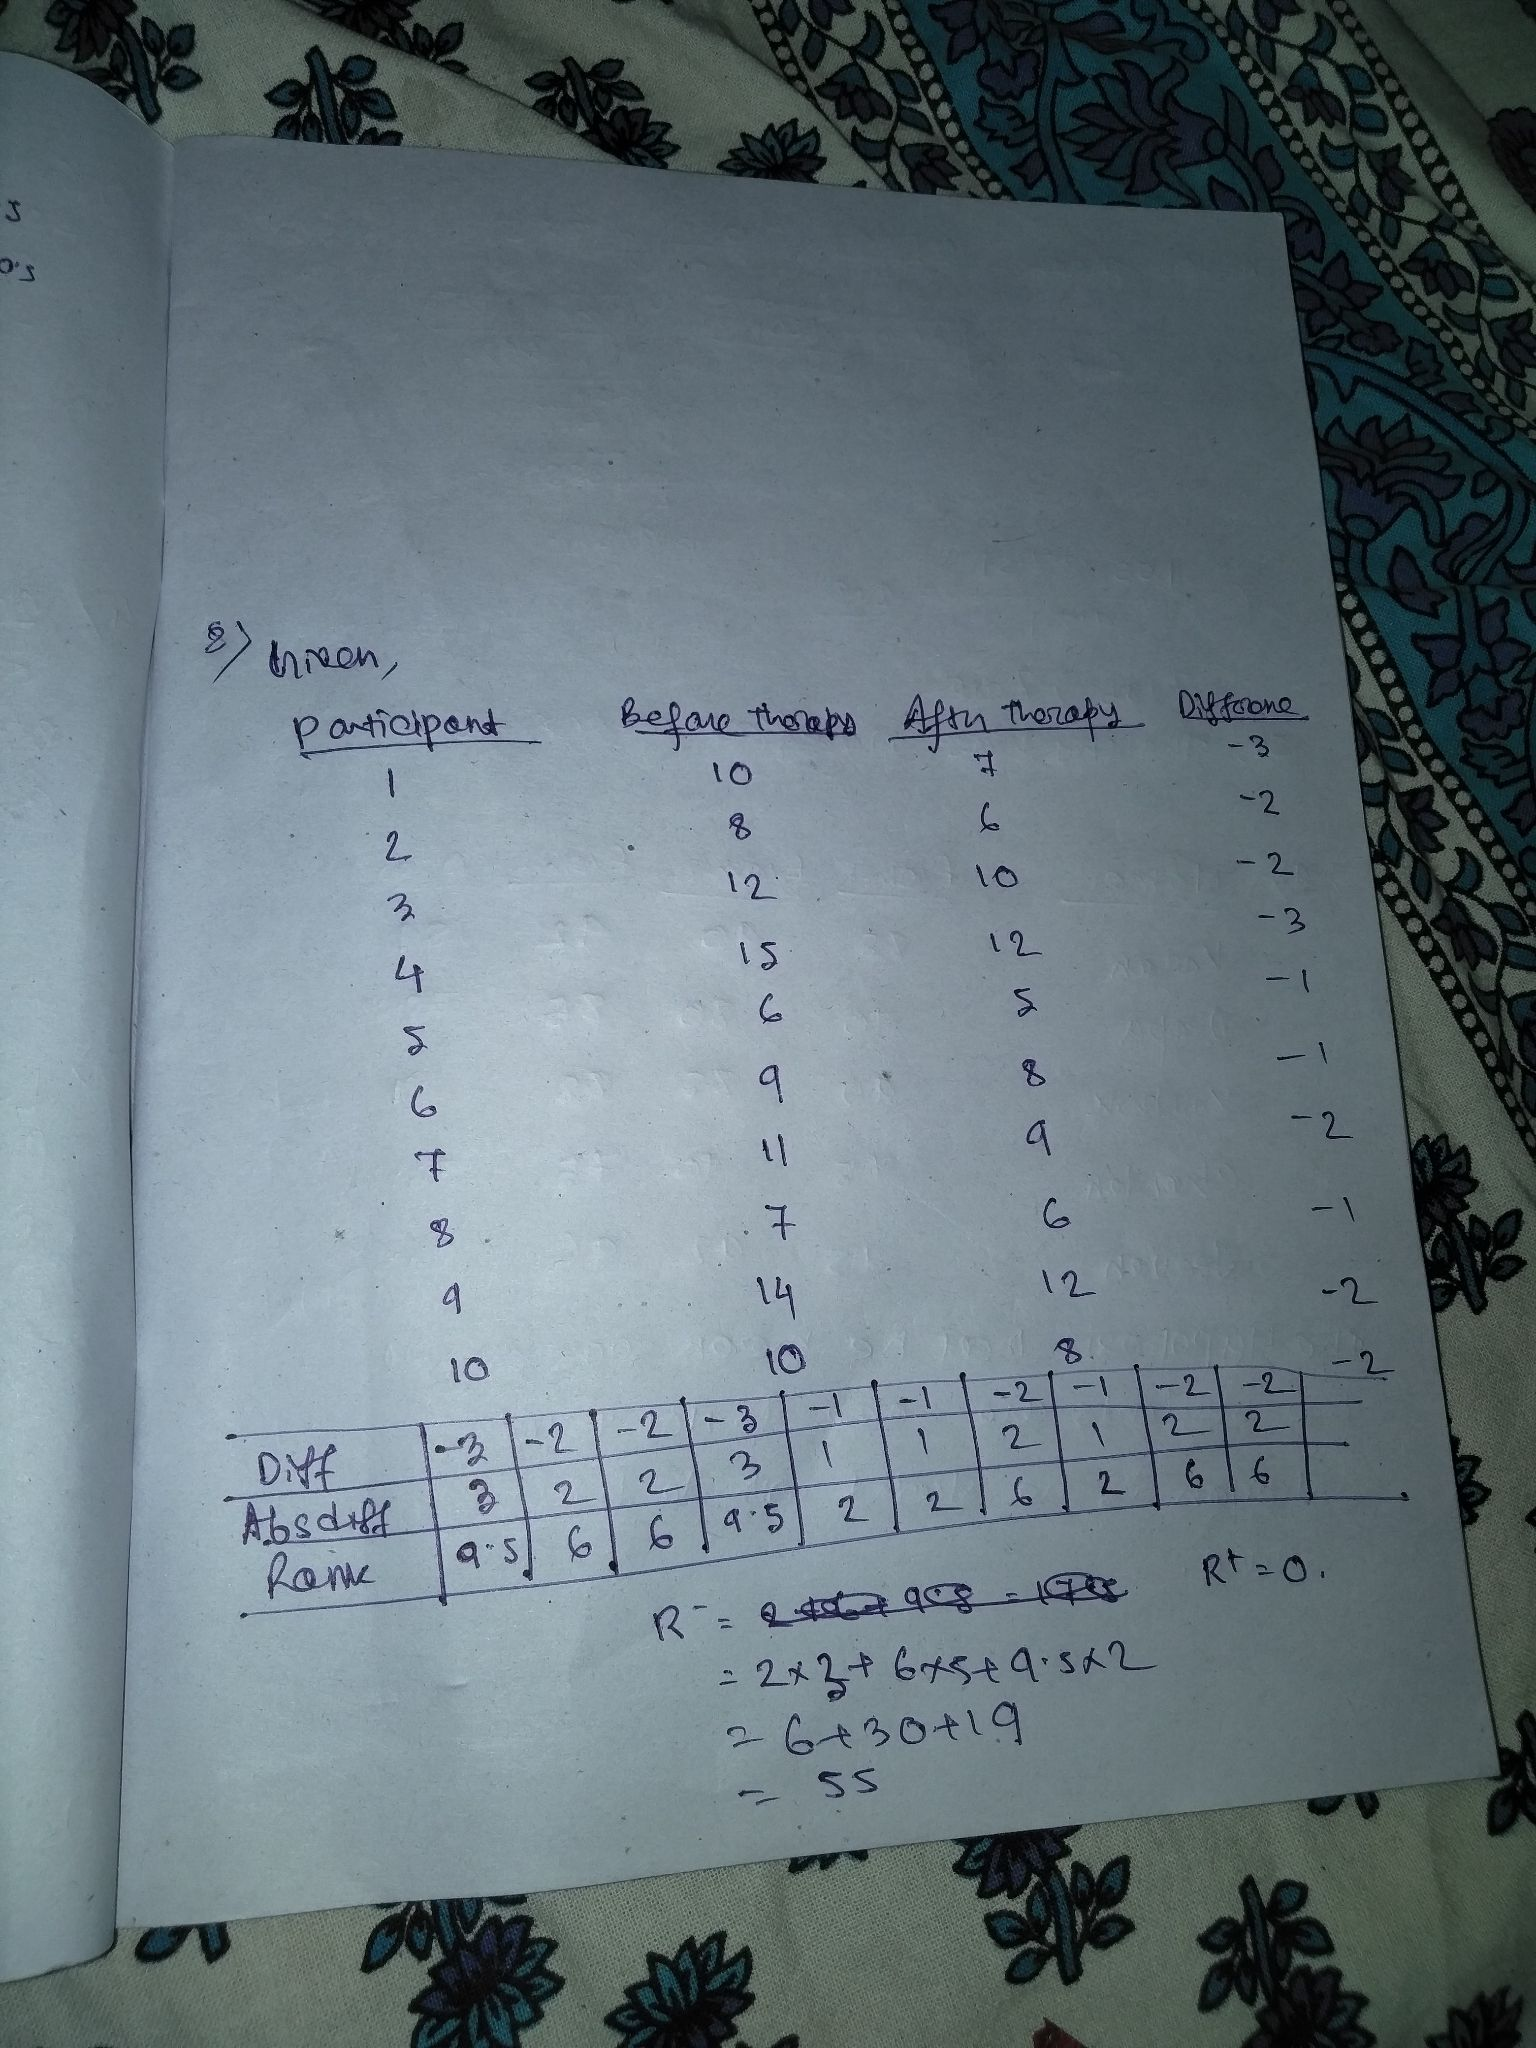 s
0.5
8) Given,
Participant Before Therapy After therapy Difference
1 10 7 -3
2 8 6 -2
3 12 10 -2
4 15 12 -3
5 6 5 -1
6 9 8 -1
7 11 9 -2
8 7 6 -1
9 14 12 -2
10 10 8 -2
Diff -3 -2 -2 -3 -1 -1 -2 -1 -2 -2
Absdiff 3 2 2 3 1 1 2 1 2 2
Rank 9.5 6 6 9.5 2 2 6 2 6 6
R⁻ = R⁺ = 0.
= 2×3 + 6×5 + 9.5×2
= 6+30+19
= 55